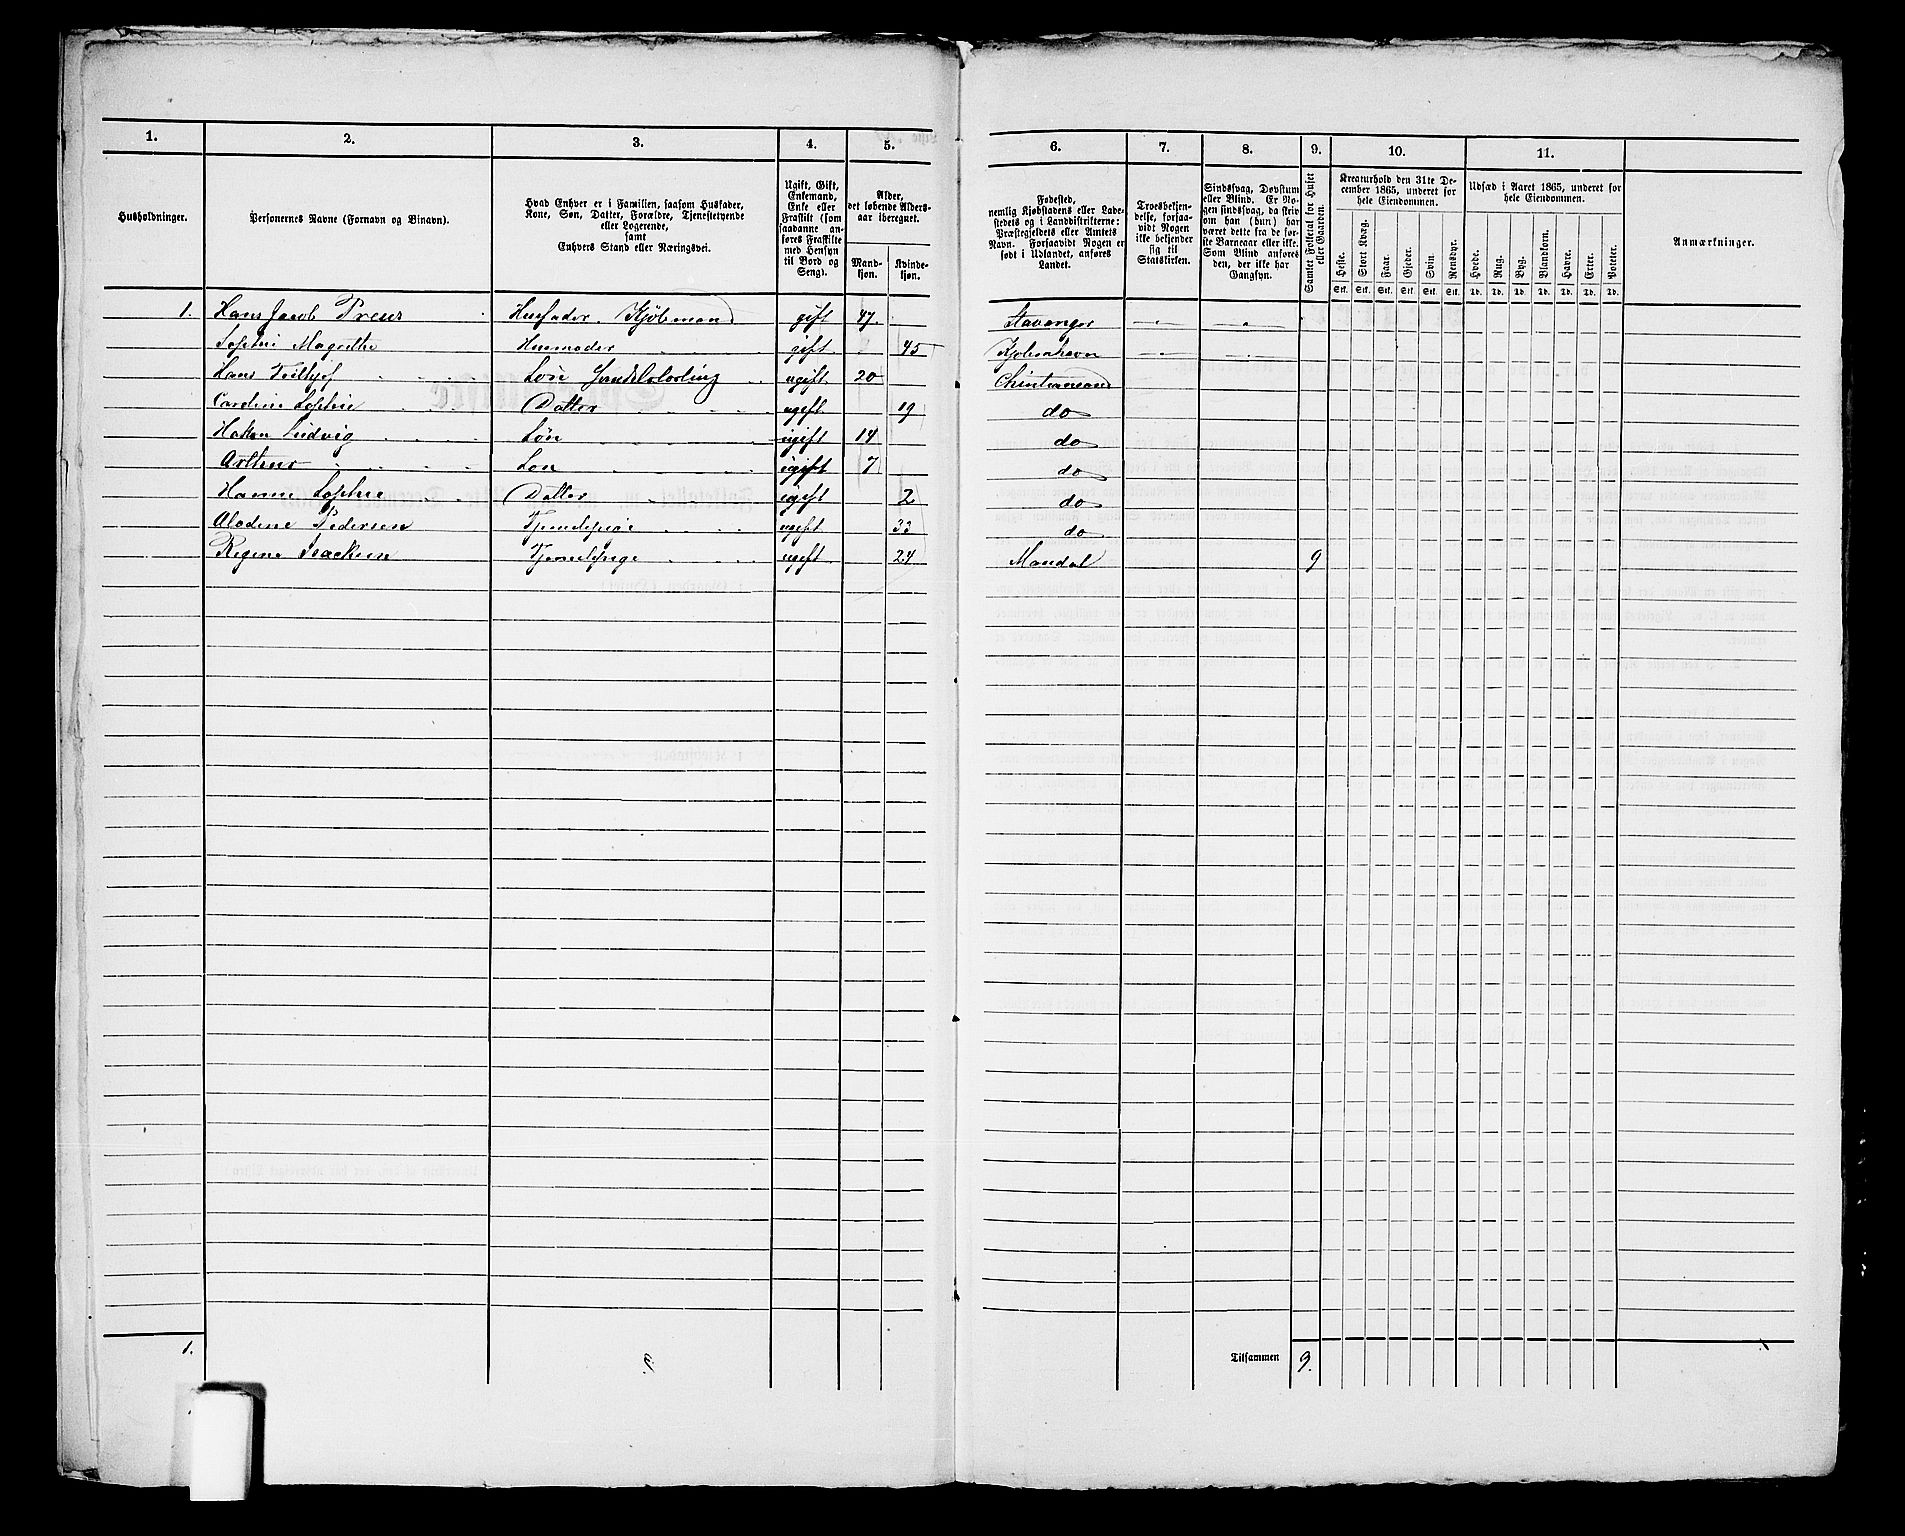 1. 2. 3. 4. 5. 6. 7. 8. 9. 10. 11.
Husholdninger.
Personernes Navne (Fornavn og Binavn).
Hvad Enhver er i Familien, saasom Husfader,
Kone, Søn, Datter, Forældre, Tjenestetyende
eller Logerende,
samt
Enhvers Stand eller Næringsvei.
Ugift, Gift,
Enkemand,
Enke eller
Fraskilt (som
saadanne an-
føres Fraskilte
med Hensyn
til Bord og
Seng).
Alder,
det løbende Alders-
aar iberegnet.
Mand-
kjøn.
Kvinde-
kjøn.
Fødested,
nemlig Kjøbstadens eller Lade-
stedets og i Landdistrikterne:
Præstegjeldets eller Amtets
Navn. Forsaavidt Nogen er
født i Udlandet, anføres
Landet.
Troesbekjen-
delse, forsaa-
vidt Nogen
ikke bekjender
sig til
Statskirken.
Sindssvag, Døvstum
eller Blind. Er No-
gen sindssvag, da skriv
om han (hun) har
været dette fra de før-
ste Barneaar eller ikke.
Som Blind anføres
den, der ikke har
Gangsyn.
Samlet Folketal for Huset
eller Gaarden.
Kreaturhold den 31te De-
cember 1865, underet for
hele Eiendommen.
Heste. Stort Kvæg. Faar. Gjeder. Svin. Rensdyr.
Stk. Stk. Stk. Stk. Stk. Stk.
Udsæd i Aaret 1865, underet for
hele Eiendommen.
Hvede. Rug. Byg. Blandkorn. Havre. Erter. Poteter.
Td. Td. Td. Td. Td. Td. Td.
Anmærkninger.
1. Hans Jacob Preus Husfader. Kjøbmand gift 47. Stavanger
Sophie Magrethe Husmoder gift 45 Kjøbenhavn
Hans Husfader Søn ugift 20 Christiansand
Sophie Datter ugift 19 do
Hakon Ludvig Søn ugift 14 do
Søn ugift 7 do
Hanne Sophie Datter ugift 2 do
Pedersen Tjenestepige ugift 33 do
Regine Isacksen Tjenestepige ugift 24 Mandal 9
1. 9. Tilsammen 9.